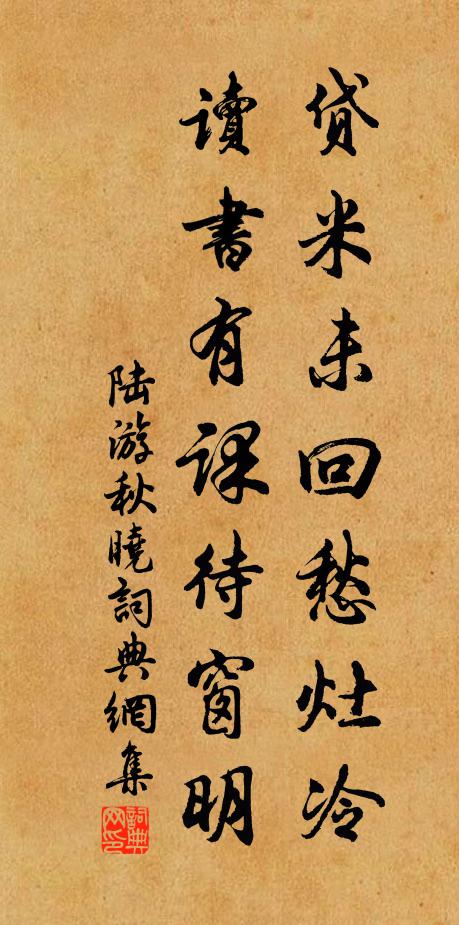 貸米未回愁灶冷
讀書有課待窗明
陆游秋曉詞典網集
詞典
网印